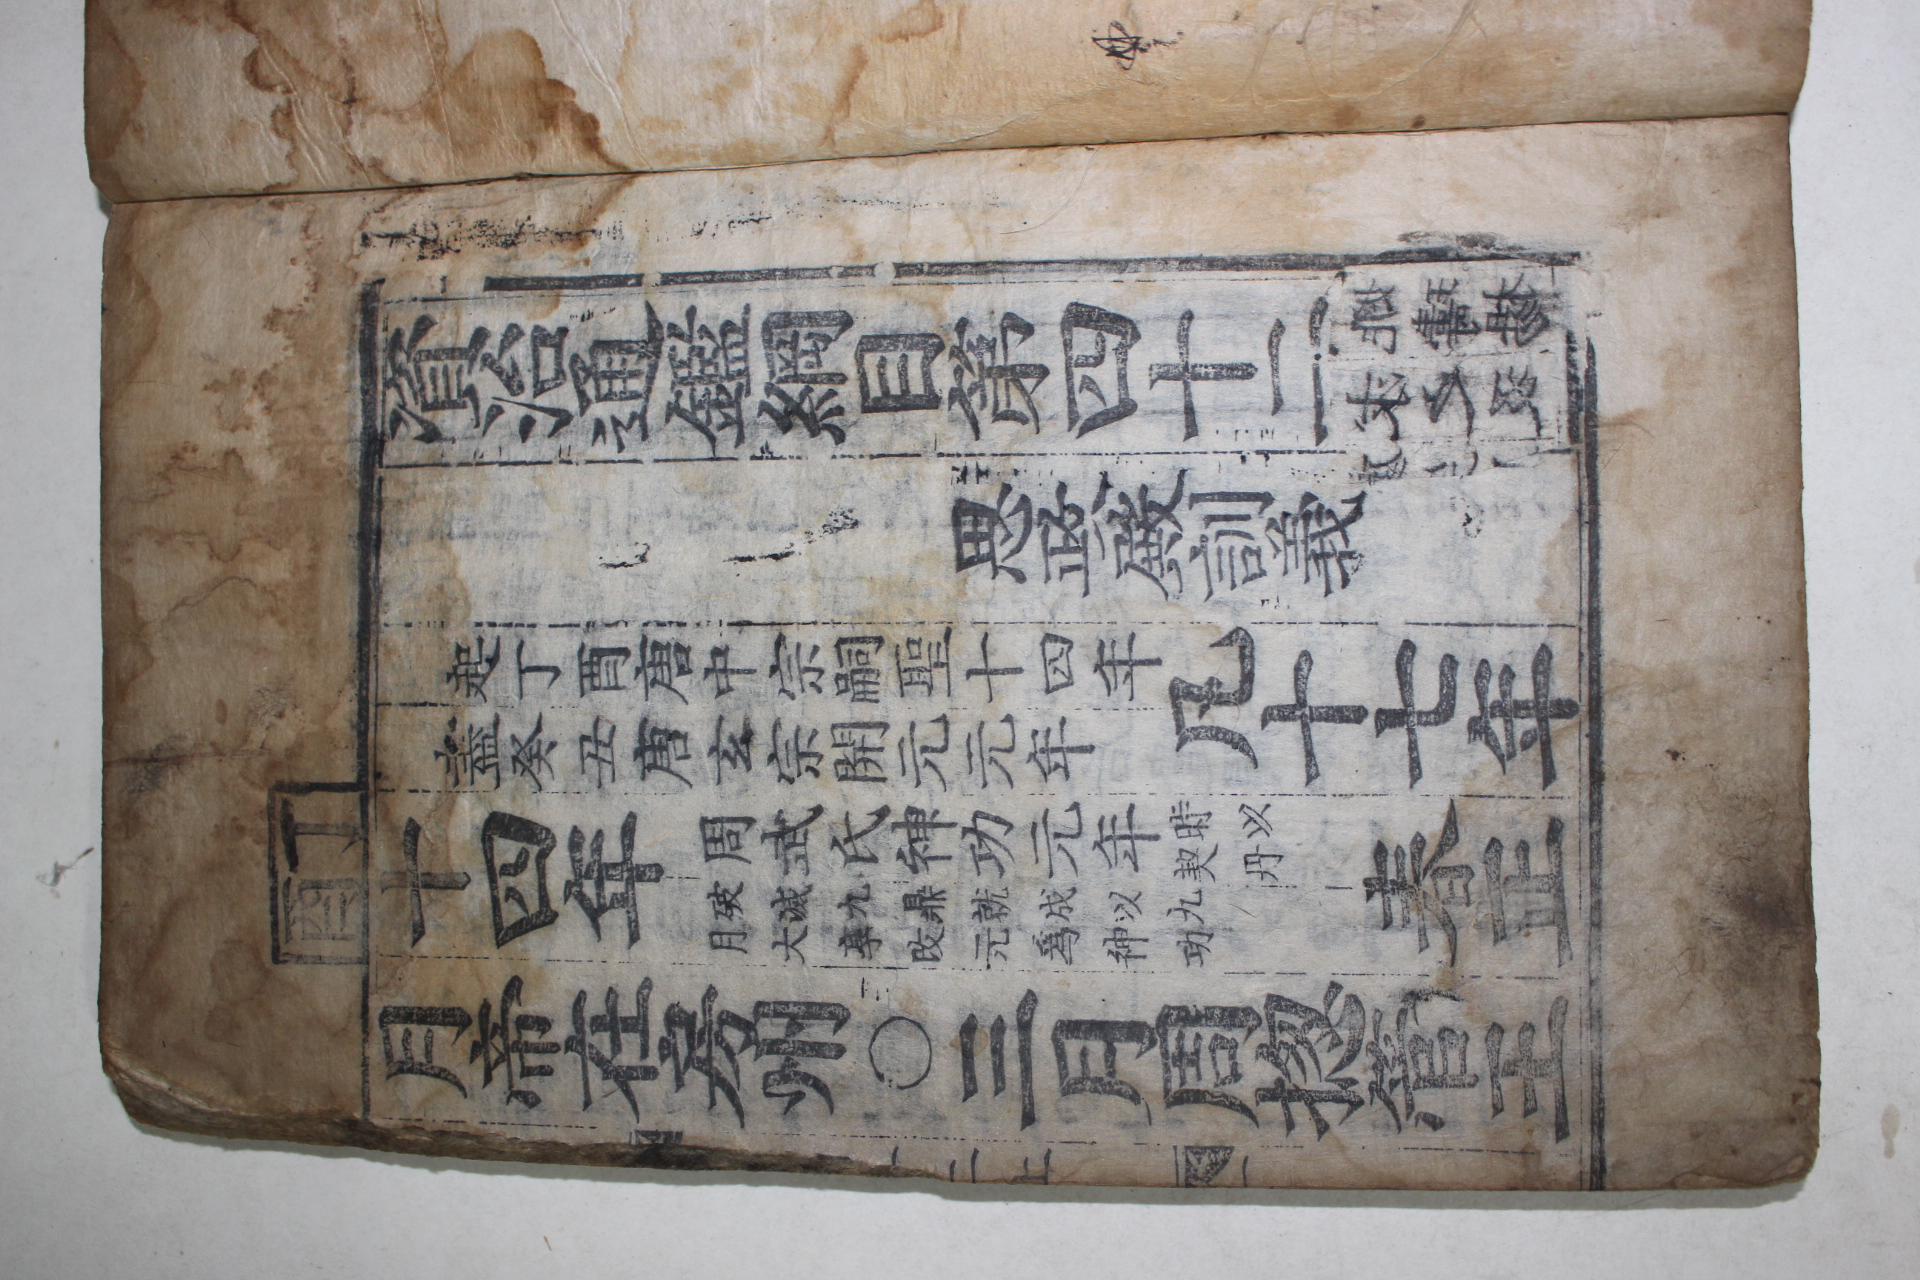 資治通鑑綱目第四十二
思政殿訓義
起丁酉唐中宗嗣聖十四年
盡癸丑唐玄宗開元元年
凡十七年
丁酉
十四年
周武氏神功元年
時以
契丹
破滅九鼎就成以九
月大享改元爲神功
春正
月帝在房州〇三月周揔管王
二上